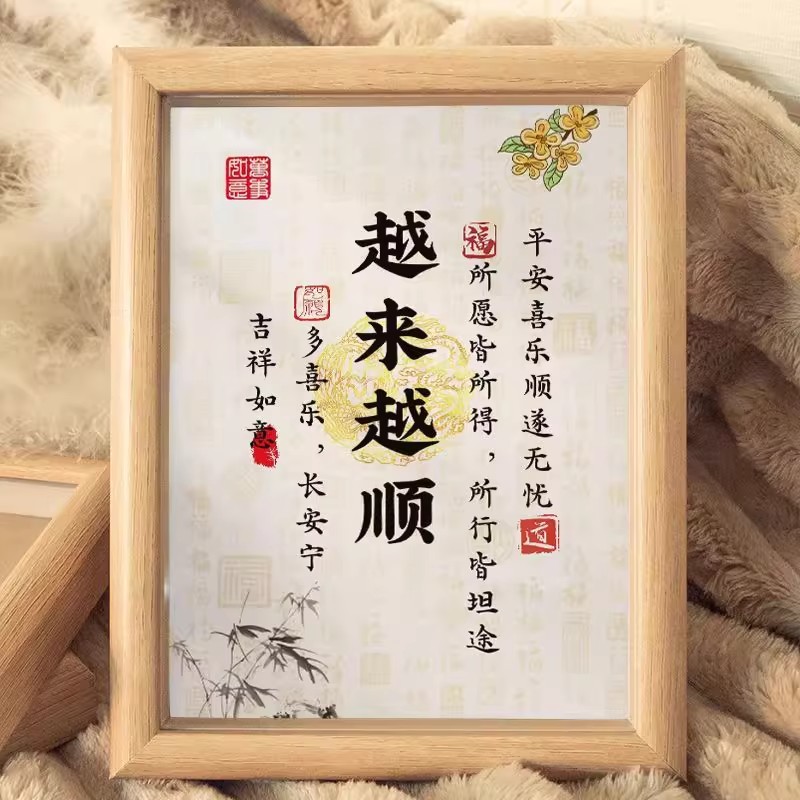 平安喜乐顺遂无忧
道
福
所愿皆所得，所行皆坦途
越来越顺
多喜乐，长安宁
吉祥如意
萬事如意